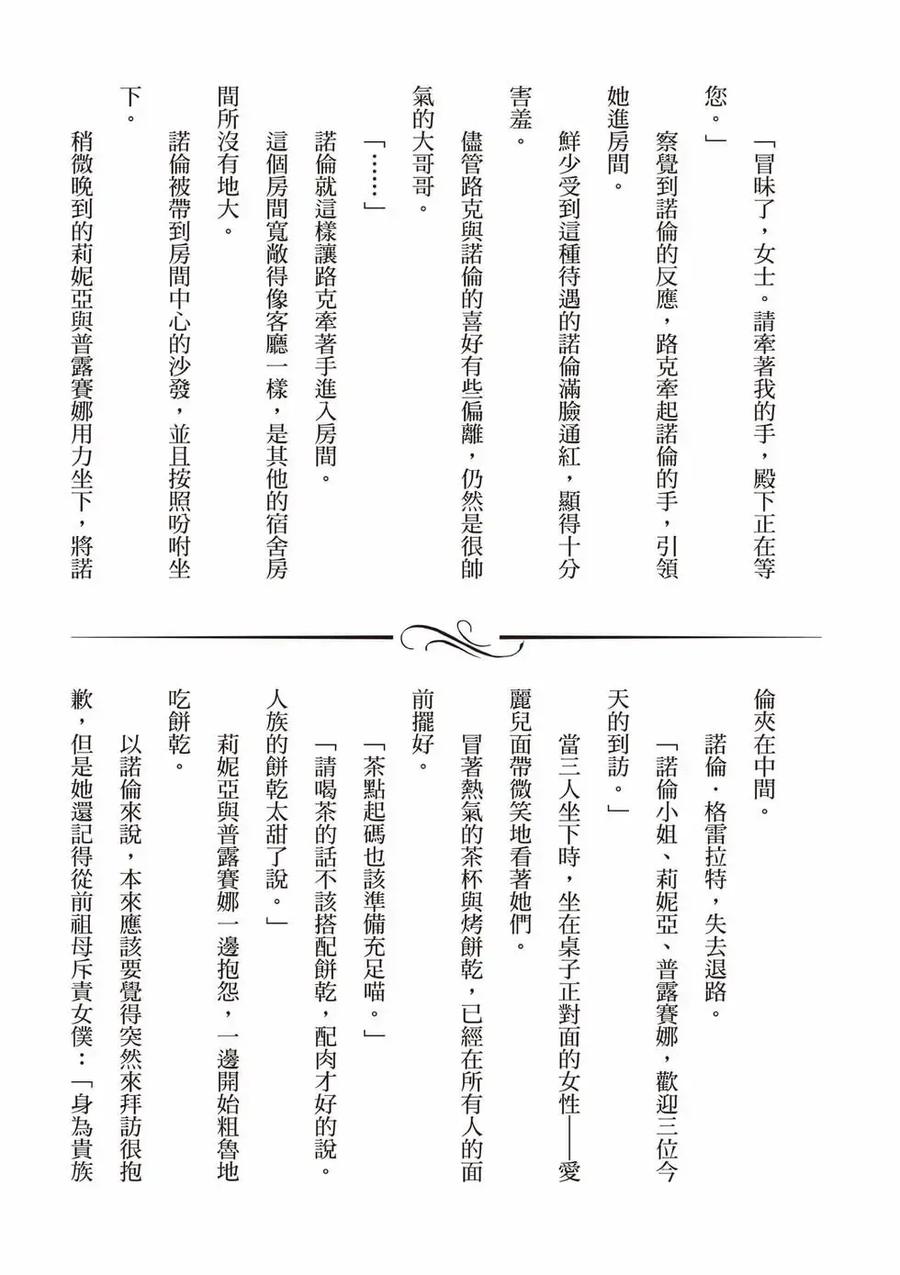 「冒昧了，女士。請牽著我的手，殿下正在等
您。」
察覺到諾倫的反應，路克牽起諾倫的手，引領
她進房間。
鮮少受到這種待遇的諾倫滿臉通紅，顯得十分
害羞。
儘管路克與諾倫的喜好有些偏離，仍然是很帥
氣的大哥哥。
「……」
諾倫就這樣讓路克牽著手進入房間。
這個房間寬敞得像客廳一樣，是其他的宿舍房
間所沒有地大。
諾倫被帶到房間中心的沙發，並且按照吩咐坐
下。
稍微晚到的莉妮亞與普露賽娜用力坐下，將諾
倫夾在中間。
諾倫·格雷拉特，失去退路。
「諾倫小姐、莉妮亞、普露賽娜，歡迎三位今
天的到訪。」
當三人坐下時，坐在桌子正對面的女性——愛
麗兒面帶微笑地看著她們。
冒著熱氣的茶杯與烤餅乾，已經在所有人的面
前擺好。
「茶點起碼也該準備充足喵。」
「請喝茶的話不該搭配餅乾，配肉才好的說。
人族的餅乾太甜了說。」
莉妮亞與普露賽娜一邊抱怨，一邊開始粗魯地
吃餅乾。
以諾倫來說，本來應該要覺得突然來拜訪很抱
歉，但是她還記得從前祖母斥責女僕：「身為貴族